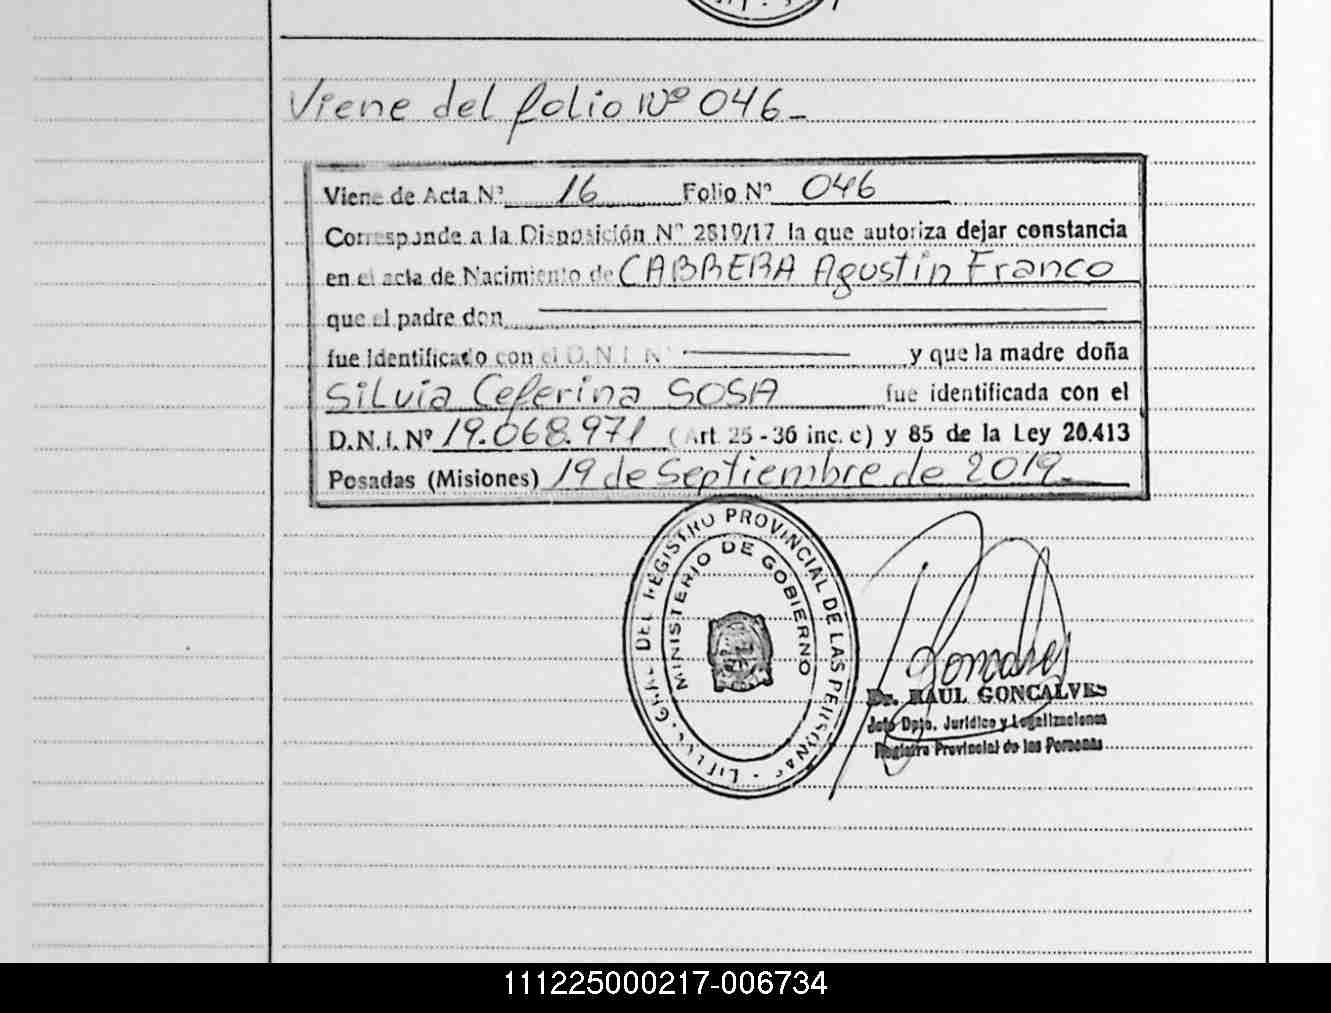 Viene del folio Nº 046_
Viene de Acta Nº 16 Folio Nº 046
Corresponde a la Disposición Nº 2819/17 la que autoriza dejar constancia
en el acta de Nacimiento de CABRERA Agustin Franco
que el padre don
fue identificado con el D.N.I. Nº y que la madre doña
Silvia Ceferina SOSA fue identificada con el
D.N.I. Nº 19.068.971 (Art. 25 - 36 inc. c) y 85 de la Ley 20.413
Posadas (Misiones) 19 de Septiembre de 2019_
DEL REGISTRO PROVINCIAL DE LAS PERSONAS
MINISTERIO DE GOBIERNO
Goncalves
Dr. RAUL GONCALVES
Jefe Dpto. Jurídico y Legalizaciones
Registro Provincial de las Personas
111225000217-006734